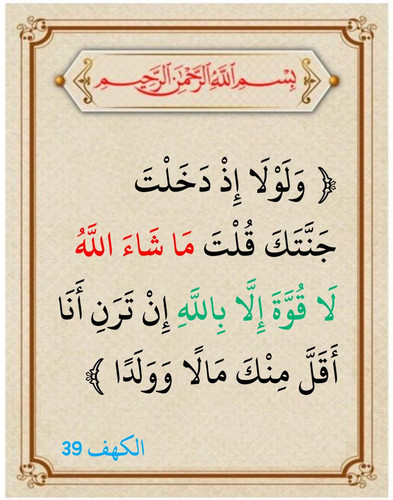 بِسْمِ اللَّهِ الرَّحْمَٰنِ الرَّحِيمِ
﴿ وَلَوْلَا إِذْ دَخَلْتَ
جَنَّتَكَ قُلْتَ مَا شَاءَ اللَّهُ
لَا قُوَّةَ إِلَّا بِاللَّهِ إِنْ تَرَنِ أَنَا
أَقَلَّ مِنْكَ مَالًا وَوَلَدًا ﴾
الكهف 39